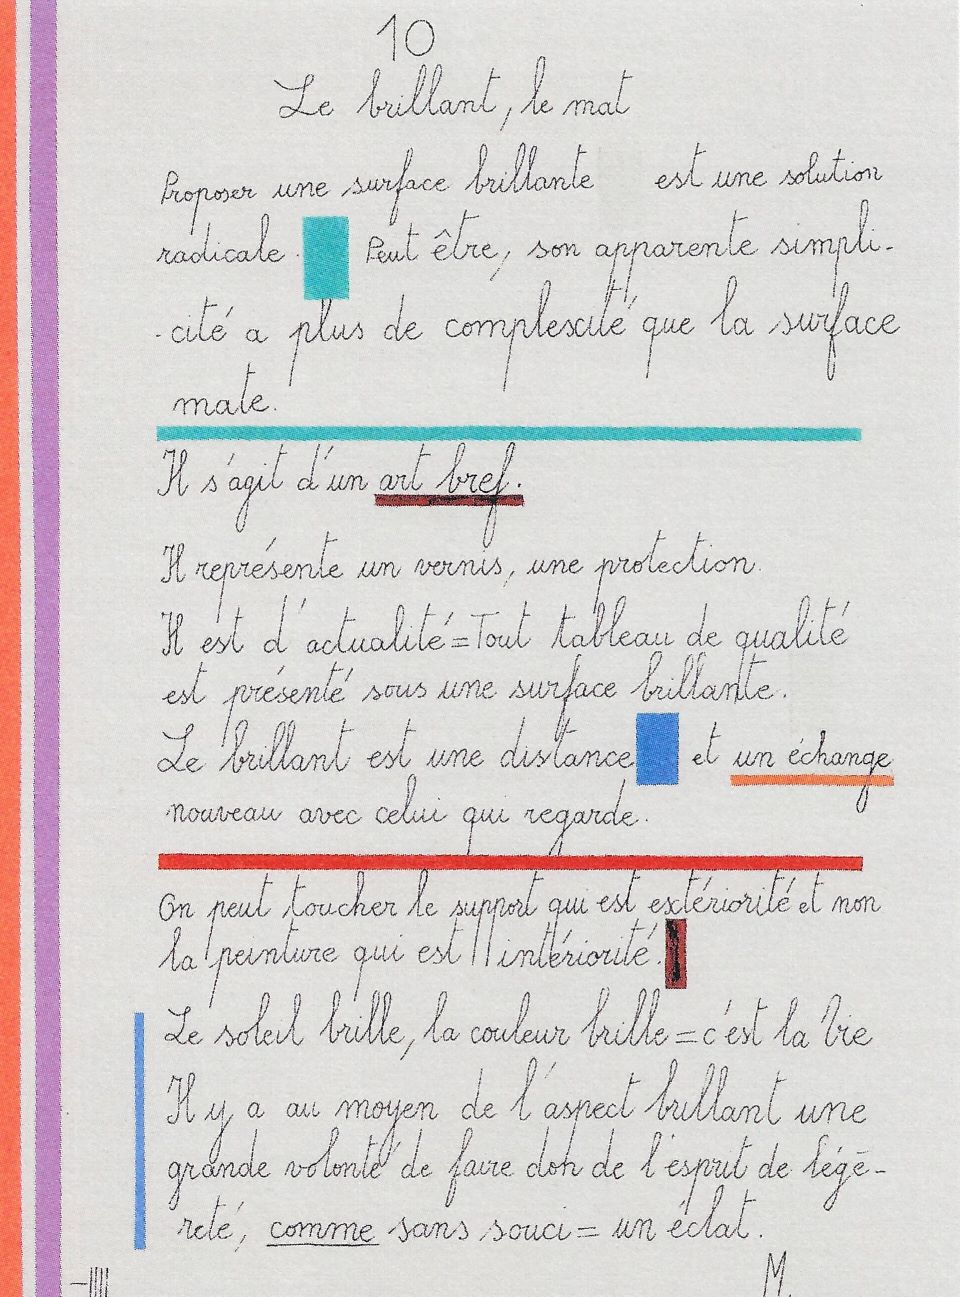 10
Le brillant, le mat
Proposer une surface brillante est une solution
radicale. Peut être, son apparente simpli-
-cité a plus de complexité que la surface
mate.
Il s'agit d'un art bref.
Il représente un vernis, une protection.
Il est d'actualité = Tout tableau de qualité
est présenté sous une surface brillante.
Le brillant est une distance et un échange
nouveau avec celui qui regarde.
On peut toucher le support qui est extériorité et non
la peinture qui est intériorité.
Le soleil brille, la couleur brille = c'est la Vie
Il y a au moyen de l'aspect brillant une
grande volonté de faire don de l'esprit de légè-
reté, comme sans souci = un éclat.
M.